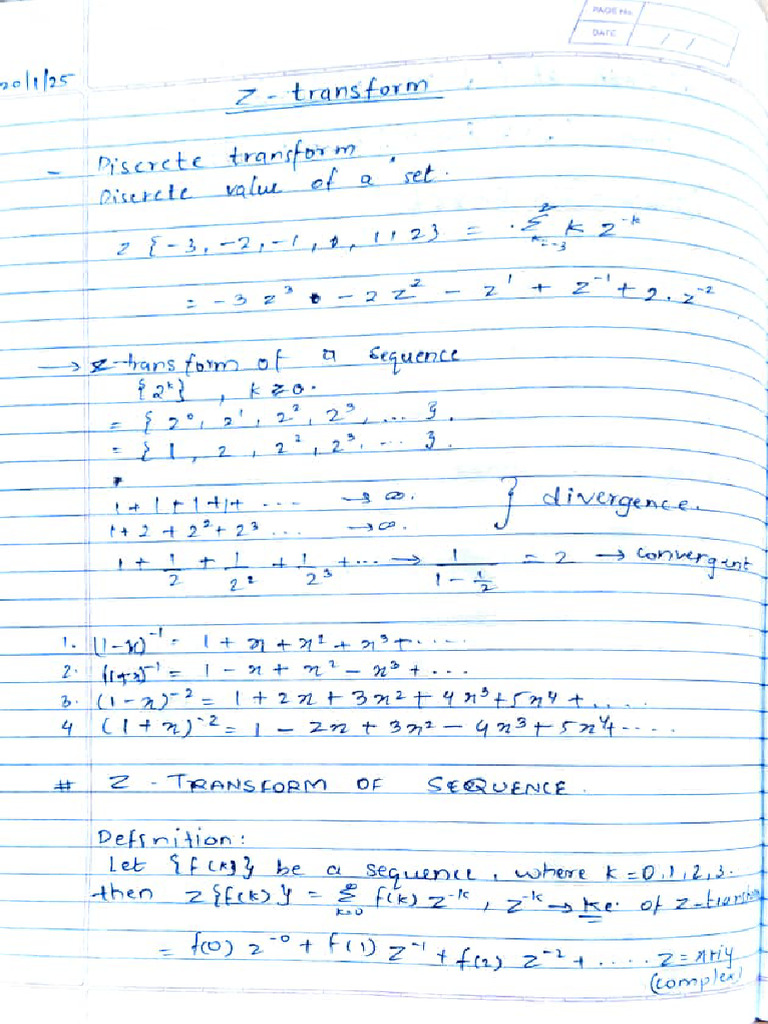 PAGE No.
DATE / /
20/1/25
Z - transform
- Discrete transform.
Discrete value of a set.
z {-3, -2, -1, 0, 1, 2} = Σ_{k=-3}^{2} k z^{-k}
= -3 z^3 - 2 z^2 - z^1 + z^{-1} + 2. z^{-2}
→ z-transform of a sequence
{2^k} , k ≥ 0.
= { 2^0, 2^1, 2^2, 2^3, ... }.
= { 1, 2, 2^2, 2^3, ... }.
1+1+1+1+ ... → ∞. } divergence.
1+2+2^2+2^3 ... → ∞.
1 + 1/2 + 1/2^2 + 1/2^3 + ... → 1/(1 - 1/2) = 2 → convergent
1. (1-x)^{-1} = 1 + x + x^2 + x^3 + ....
2. (1+x)^{-1} = 1 - x + x^2 - x^3 + ...
3. (1-x)^{-2} = 1 + 2x + 3x^2 + 4x^3 + 5x^4 + ....
4 (1+x)^{-2} = 1 - 2x + 3x^2 - 4x^3 + 5x^4 ....
# Z - TRANSFORM OF SEQUENCE.
Definition:
Let {f(k)} be a sequence, where k = 0,1,2,3.
then z{f(k)} = Σ_{k=0}^{∞} f(k) z^{-k}, z^{-k} → ke. of z-transform
= f(0) z^{-0} + f(1) z^{-1} + f(2) z^{-2} + .... z = x+iy
(complex)